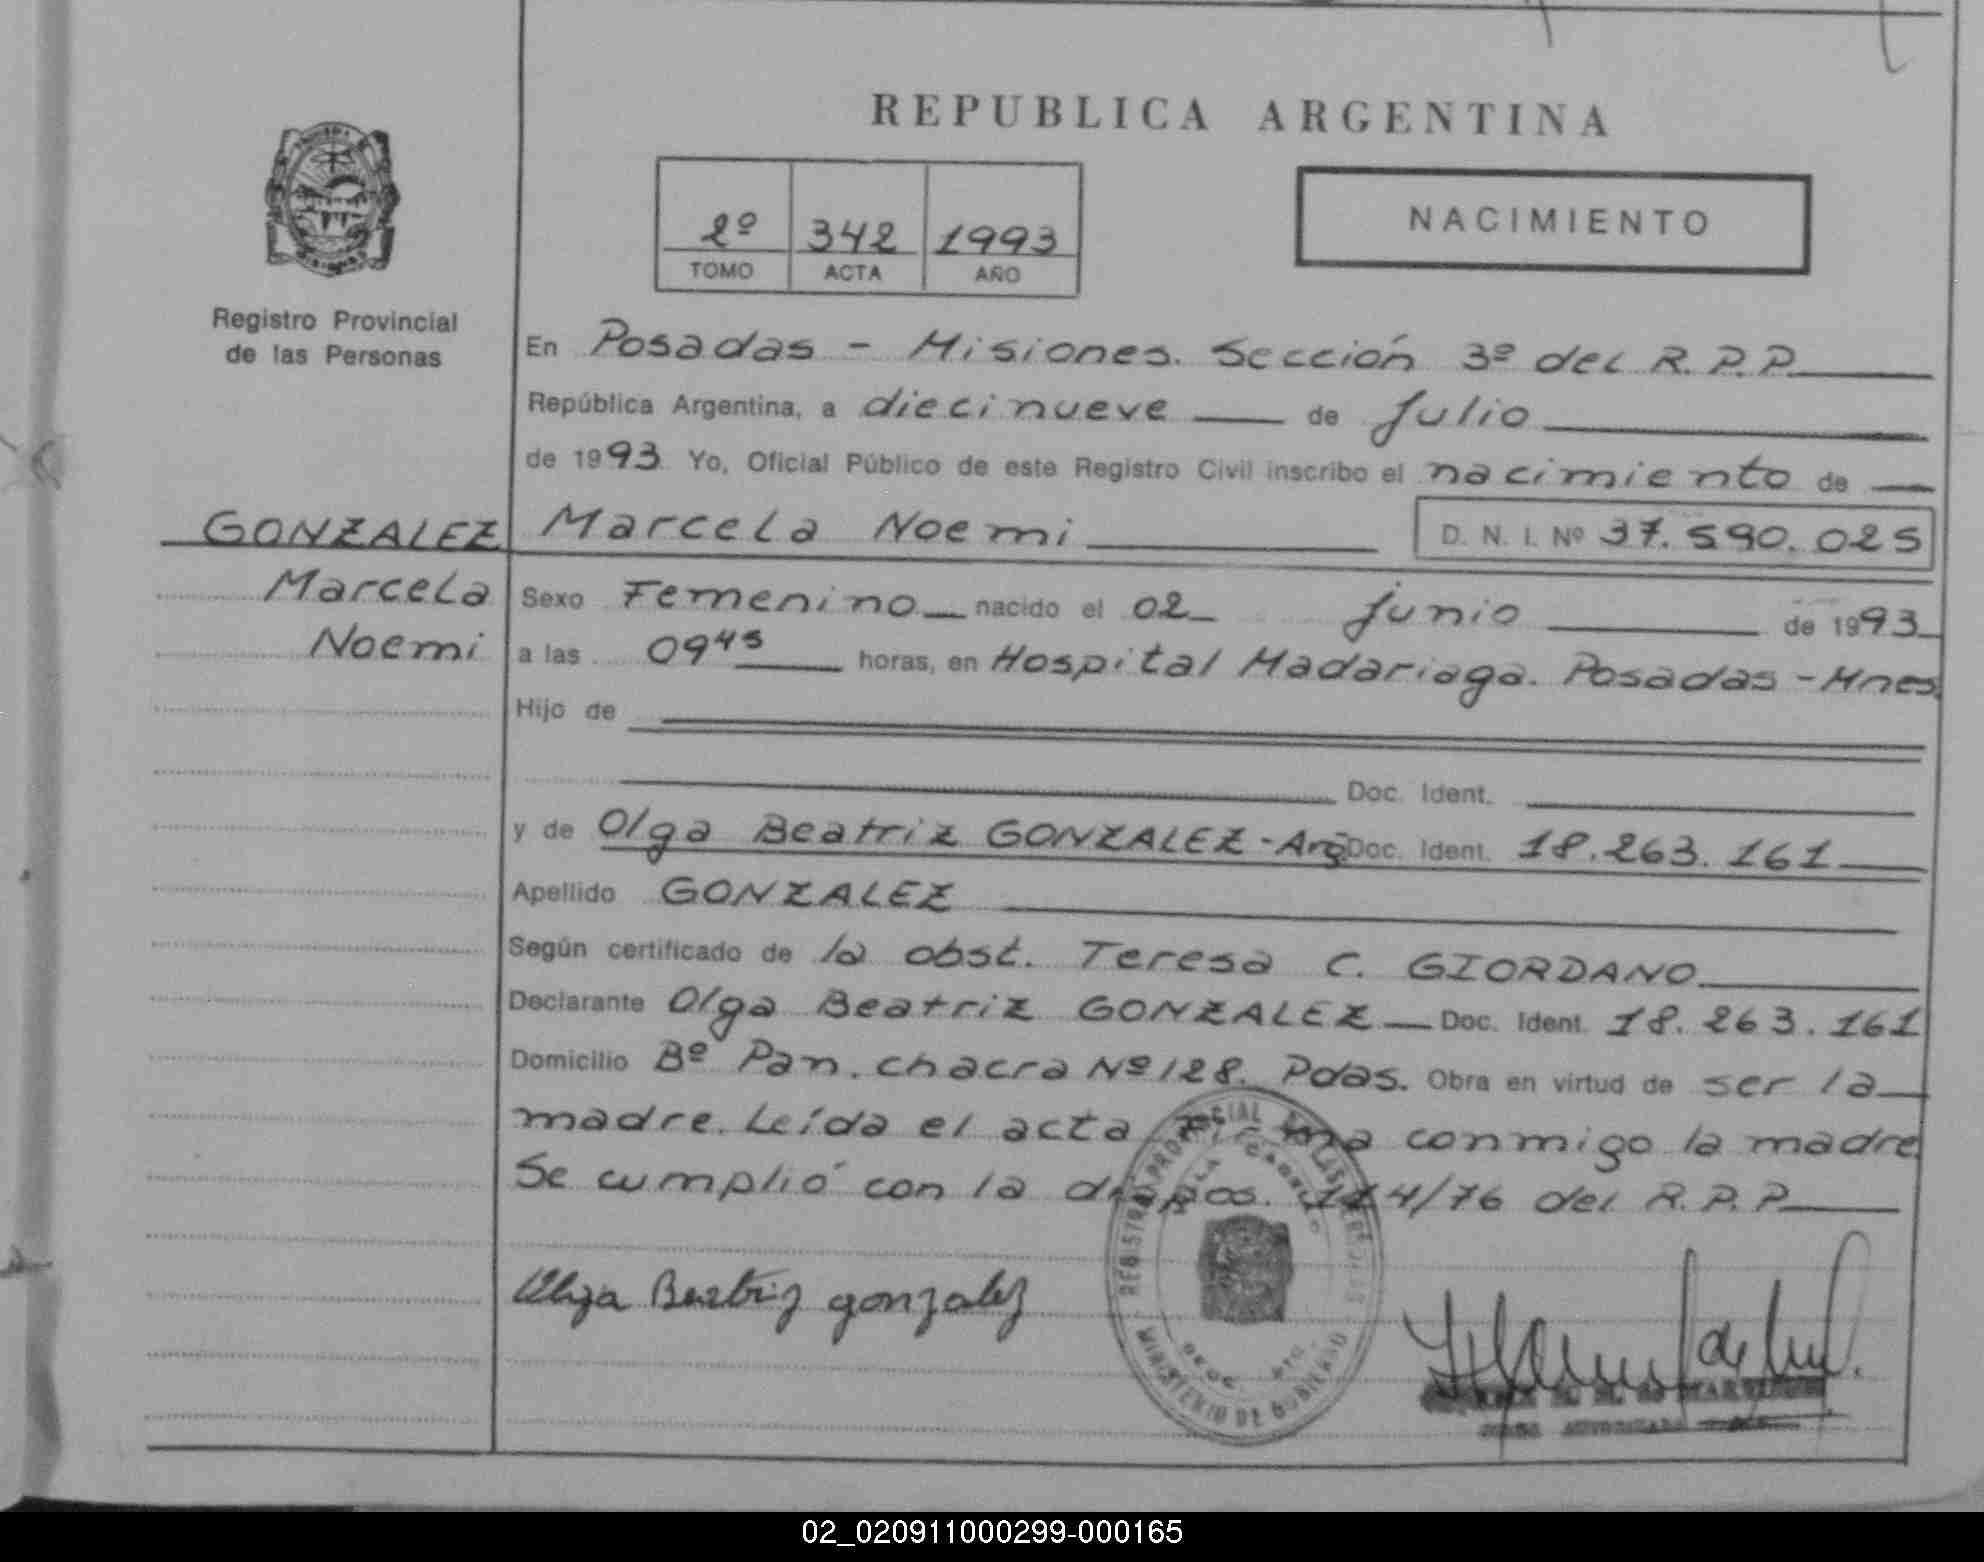 REPUBLICA ARGENTINA
2º 342 1993
TOMO ACTA AÑO
NACIMIENTO
Registro Provincial
de las Personas
En Posadas - Misiones. Sección 3º del R.P.P.
República Argentina, a diecinueve de Julio
de 1993 Yo, Oficial Público de este Registro Civil inscribo el nacimiento de
GONZALEZ Marcela Noemi D. N. I. Nº 37.590.025
Marcela Sexo Femenino nacido el 02 Junio de 1993
Noemi a las 09 45 horas, en Hospital Madariaga. Posadas - Mnes.
Hijo de
Doc. Ident.
y de Olga Beatriz GONZALEZ - Arg Doc. Ident. 18.263.161
Apellido GONZALEZ
Según certificado de la obst. Teresa C. GIORDANO
Declarante Olga Beatriz GONZALEZ Doc. Ident. 18.263.161
Domicilio Bº Pan. chacra Nº 128. Pdas. Obra en virtud de ser la
madre. Leída el acta Firma conmigo la madre
Se cumplió con la dispos. 114/76 del R.P.P.
Olga Beatriz gonzalez
REGISTRO PROVINCIAL DE LAS PERSONAS
MINISTERIO DE GOBIERNO
02_020911000299-000165